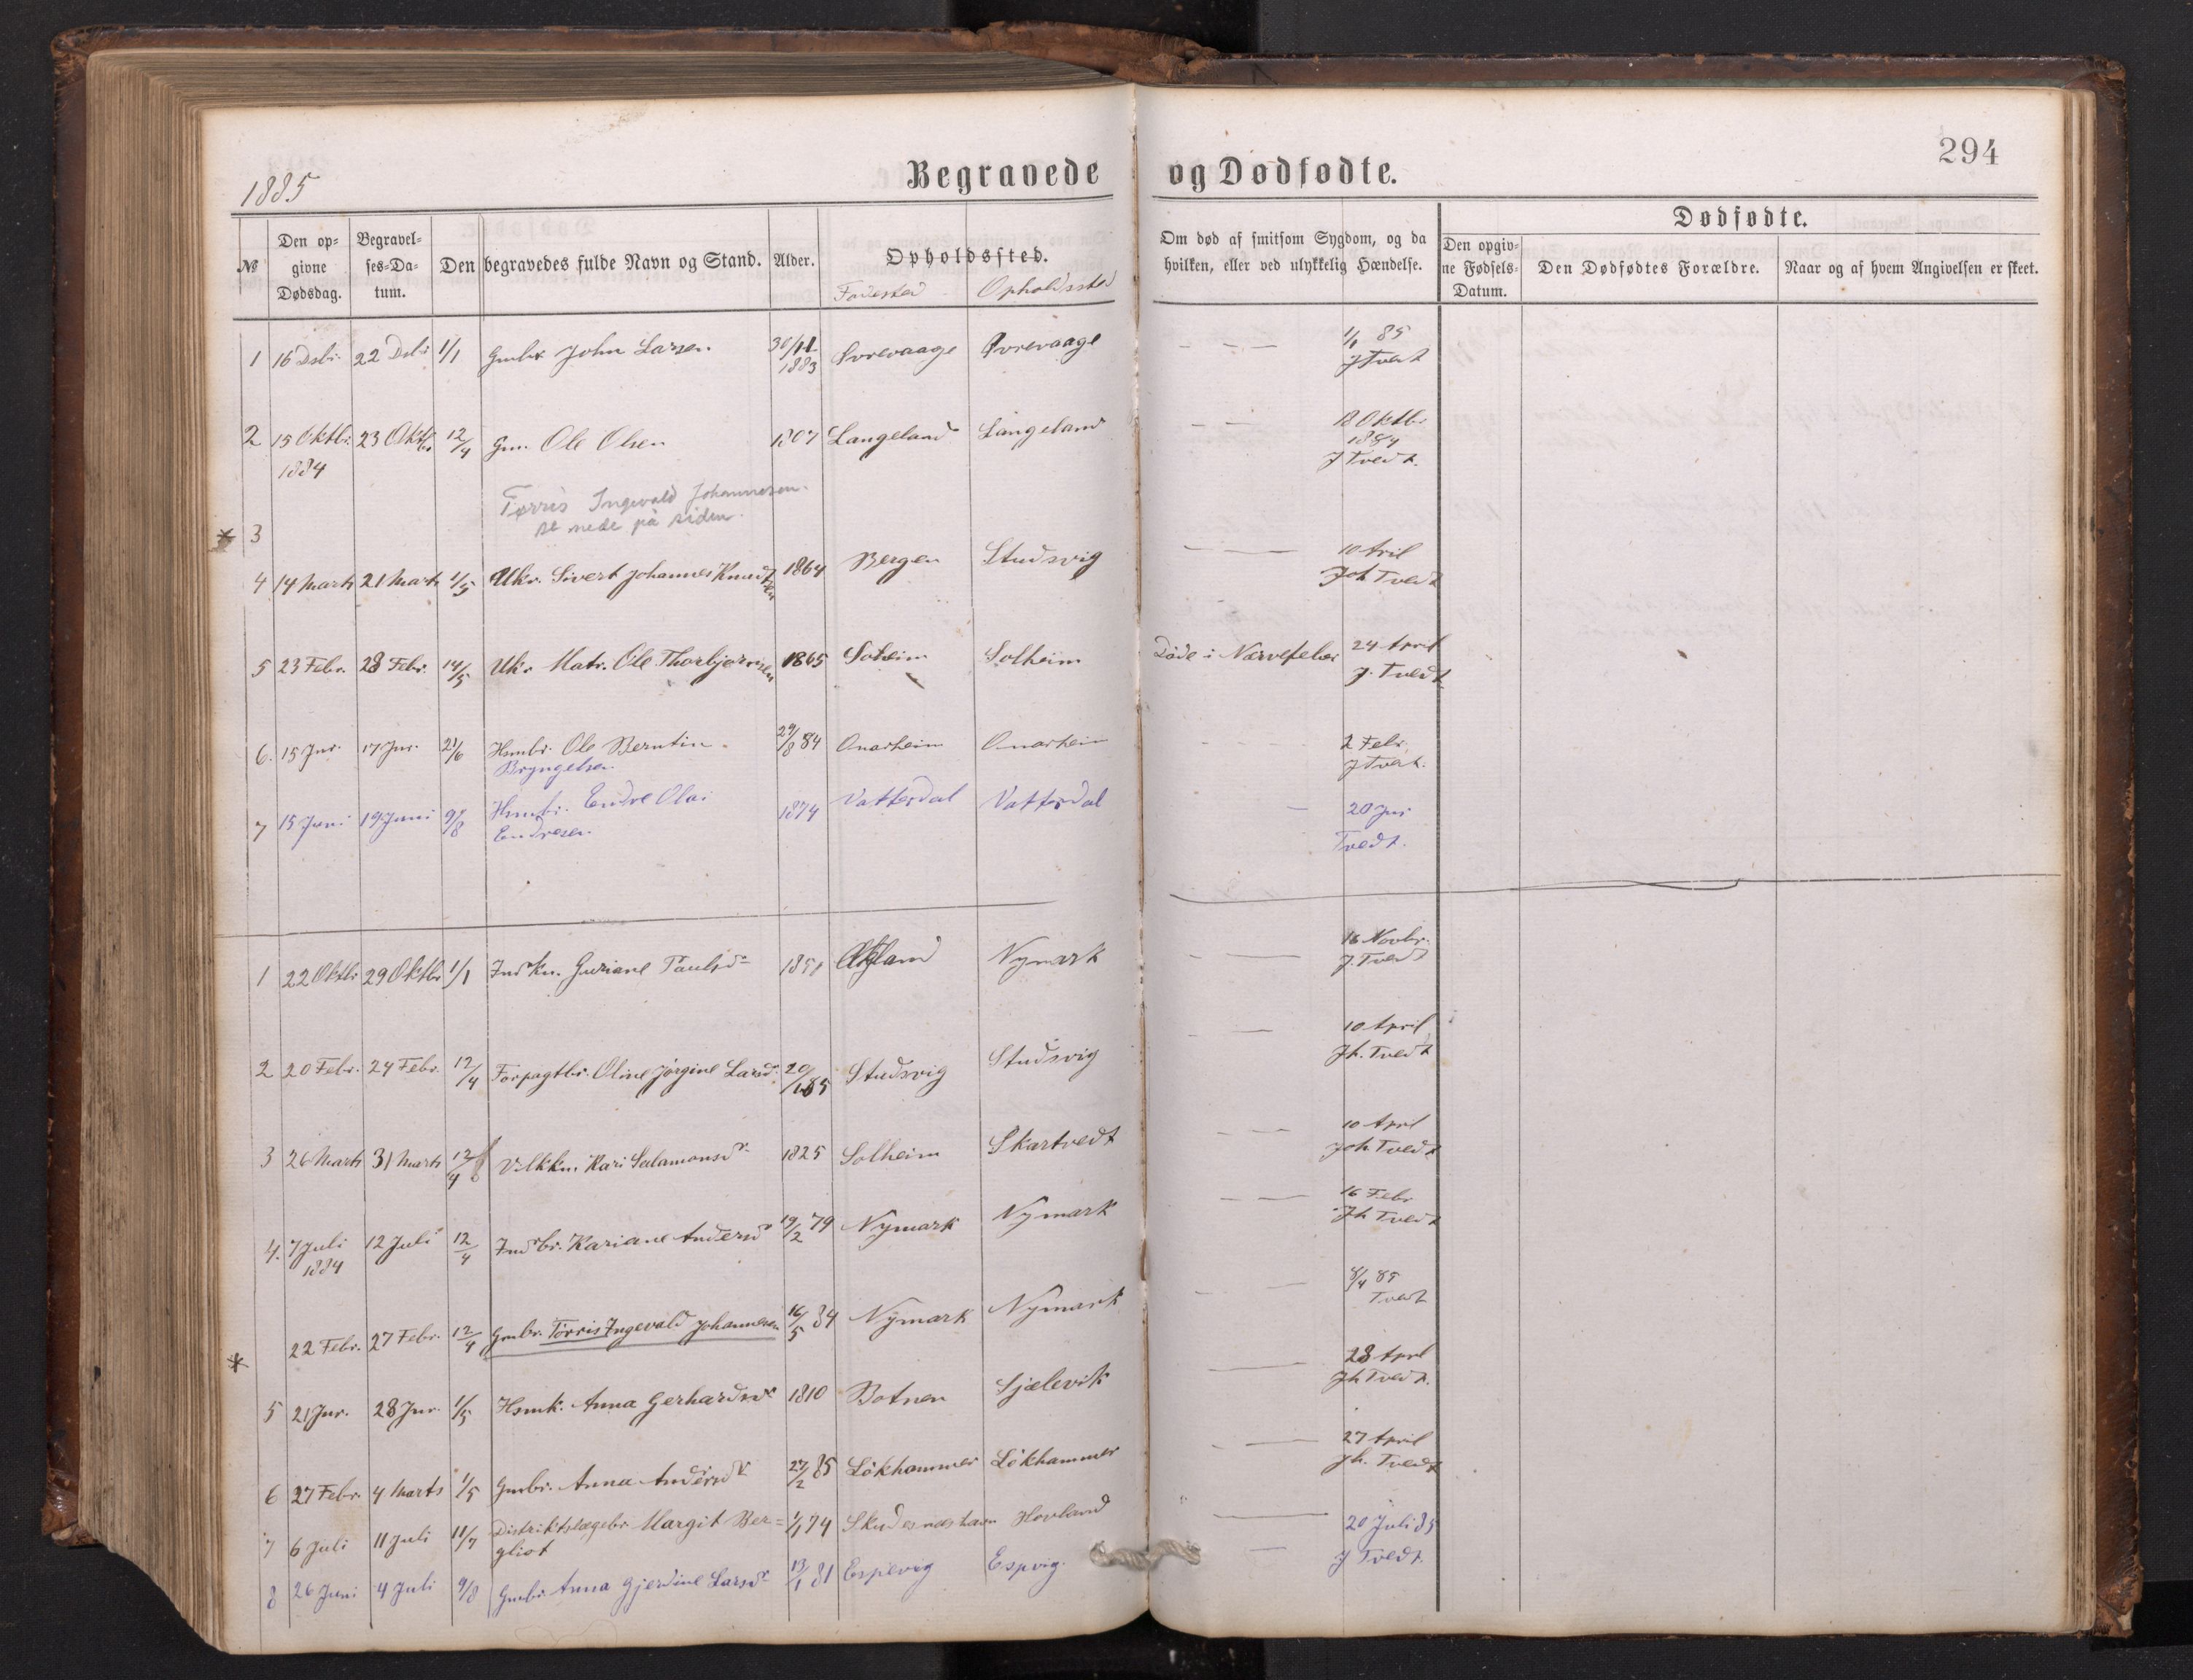 294
1885
Begravede og Dødfødte.
№
Den op=
givne
Dødsdag.
Begravel=
ses=Da=
tum.
Den begravedes fulde Navn og Stand.
Alder.
Opholdssted.
Fødested Opholdssted
Om død af smitsom Sygdom, og da
hvilken, eller ved ulykkelig Hændelse.
Dødfødte.
Den opgiv=
ne Fødsels=
Datum.
Den Dødfødtes Forældre.
Naar og af hvem Angivelsen er skeet.
1 16 Dsbr. 22 Dsbr 1/1 Gmbr John Larsen 30/11 1883 1/1 85
J Tvedt
2 15 Oktbr. 23 Oktbr 12/4 Gm. Ole Olsen 1807 Langeland Langeland 18 Oktbr
1884 1884
J Tvedt.
Tørris Ingevald Johannesen.
se nede på siden.
* 3
4 14 Marts 21 Marts 1/5 Ukr. Sivert Johannes Knudsen 1864 Bergen Studsvig 10 April
Joh Tvedt
5 23 Febr. 28 Febr. 14/5 Ukr. Matr. Ole Thorbjørnsen 1865 Solheim Solheim Døde i Nervefeber 24 April
J. Tvedt
6. 15 Jnr. 17 Jnr. 21/6 Hsmbr. Ole Berntin 29/8 84 Onarheim Onarheim 2 Febr.
Bryngelsen J Tvedt.
7 15 Juni 19 Juni 9/8 Hsmbr. Endre Olai 1874 Vattesdal Vattsdal 20 Jni
Endresen Tvedt.
1 22 Oktbr 29 Oktbr 1/1 Inds kn. Guriane Paulsdr 1851 Nymark 16 Novbr.
J. Tvedt
2 20 Febr. 24 Febr. 12/4 Forpagtbr. Oline Jørgine Larsdr. 20/1 85 Studsvig Studsvig 10 April
Jh. Tvedt
3 26 Marts 31 Marts 12/4 Vilkkn. Kari Salamonsdr. 1825 Solheim Skartvedt 10 April
Joh. Tvedt
4. 7 Juli 12 Juli 12/4 Inds br. Kariane Andersdr 19/2 79 Nymark Nymark 16 Febr
1884 Jh Tvedt
* 22 Febr. 27 Febr. 12/4 Gmbr. Tørris Ingevald Johannesen 16/5 84 Nymark Nymark 8/4 85
Tvedt
5 21 Jnr. 28 Jnr. 1/5 Hsmk. Anna Gerhardsdr 1810 Botnen Sjælevik 28 April
Jh Tvedt.
6 27 Febr. 4 Marts 1/5 Gmbr. Anna Andersdr 27/2 85 Løkhammer Løkhammer 27 April
Jh. Tvedt
7 6 Juli 11 Juli 11/7 Distriktslægebr Margit Ber= 1/1 74 Skudesneshavn Hovland 20 Juli 85
gliot J Tvedt.
8 26 Juni 4 Juli 9/8 Gmbr Anna Gjerdine Larsdr 13/1 81 Espevig Espvig.